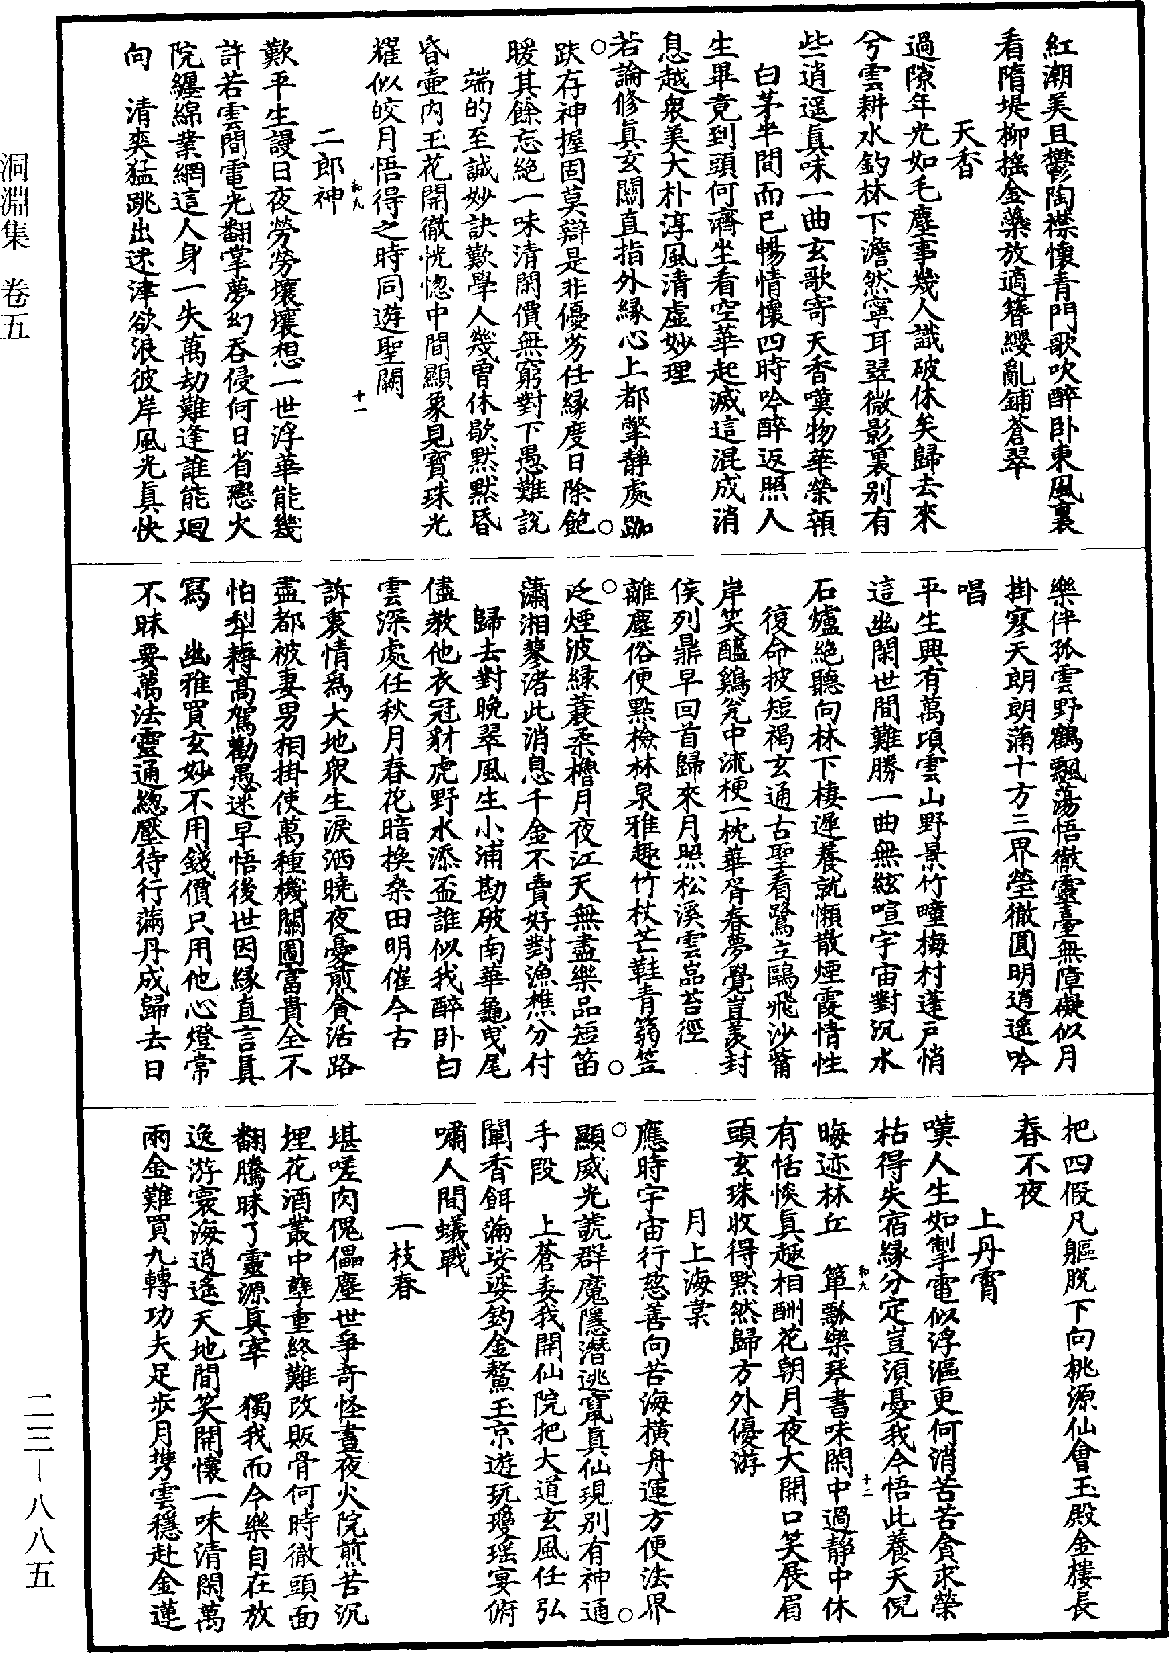 紅潮美且鬱陶襟懷青門歌吹醉卧東風裏
看隋堤柳搖金蘂放適簪纓亂鋪蒼翠
天香
過隙年光如毛塵事幾人識破休矣歸去來
兮雲耕水釣林下澹然寧耳翠微影裏別有
些逍遥真味一曲玄歌寄天香嘆物華榮領
白茅半間而已暢情懷四時吟醉返照人
生畢竟到頭何濟坐看空華起滅這混成消
息越衆美大朴淳風清虛妙理
○
若論修真玄關直指外緣心上都撆靜處跏
趺存神握固莫辯是非優劣任緣度日除飽
暖其餘忘絕一味清閑價無窮對下愚難說
端的至誠妙訣歎學人幾曾休歇默默昏
昏壺内玉花開徹恍惚中間顯象見寶珠光
耀似皎月悟得之時同遊聖闕
二郎神
歎平生謾日夜勞勞壤壤想一世浮華能幾
許若雲間電光翻掌夢幻吞侵何日省戀火
院纏綿業網這人身一失萬劫難逢誰能迴
向 清爽猛跳出迷津欲浪彼岸風光真快
樂伴孤雲野鶴飄蕩悟徹靈臺無障礙似月
掛寒天朗朗滿十方三界瑩徹圓明逍遥吟
唱
平生興有萬頃雲山野景竹疃梅村蓬戶悄
這幽閑世間難勝一曲無絃喧宇宙對沉水
石爐絶聽向林下棲遲養就懶散煙霞情性
復命披短褐玄通古聖看鷺立鷗飛沙莆
岸笑醯鷄瓮中流梗一枕華胥春夢覺豈羨封
侯列鼎早回首歸來月照松溪雲嵓苔徑
○
離塵俗便點檢林泉雅趣竹杖芒鞋青篛笠
泛煙波緑蓑柔櫓月夜江天無盡樂品短笛
瀟湘蓼渚此消息千金不賣好對漁樵分付
歸去對晚翠風生小浦勘破南華龜曳尾
儘教他衣冠豺虎野水添盃誰似我醉卧白
雲深處任秋月春花暗換桑田明催今古
○
訴衷情爲大地衆生淚洒曉夜憂煎貪活路
盡都被妻男相掛使萬種機關圖富貴全不
怕犁轉高駕勸愚迷早悟後世因緣直言具
寫 幽雅買玄妙不用錢價只用他心燈常
不昧要萬法靈通緫壓待行滿丹成歸去日
把四假凡軀脫下向桃源仙會玉殿金樓長
春不夜
上丹霄
嘆人生如掣電似浮漚更何消苦苦貪求榮
枯得失宿緣分定豈須憂我今悟此養天倪
晦迹林丘 簞瓢樂琴書味閑中過靜中休
有恬惔真趣相酬花朝月夜大開口笑展眉
頭玄珠收得默然歸方外優游
月上海棠
應時宇宙行慈善向苦海横舟運方便法界
顯威光説群魔隱潛逃竄真仙現別有神通
手段 上蒼委我開仙院把大道玄風任弘
闡香餌滿娑婆釣金鰲玉京遊玩瓊瑶宴俯
嘯人間蟻戰
○
一枝春
堪嗟肉傀儡塵世爭奇怪晝夜火院煎苦沉
埋花酒叢中孽重終難改販骨何時徹頭面
翻騰昧了靈源真宰 獨我而今樂自在放
逸游寰海逍遥天地間笑開懷一味清閑萬
兩金難買九轉功夫足歩月㩦雲穩赴金蓮
洞淵集 卷五
二三－八八五